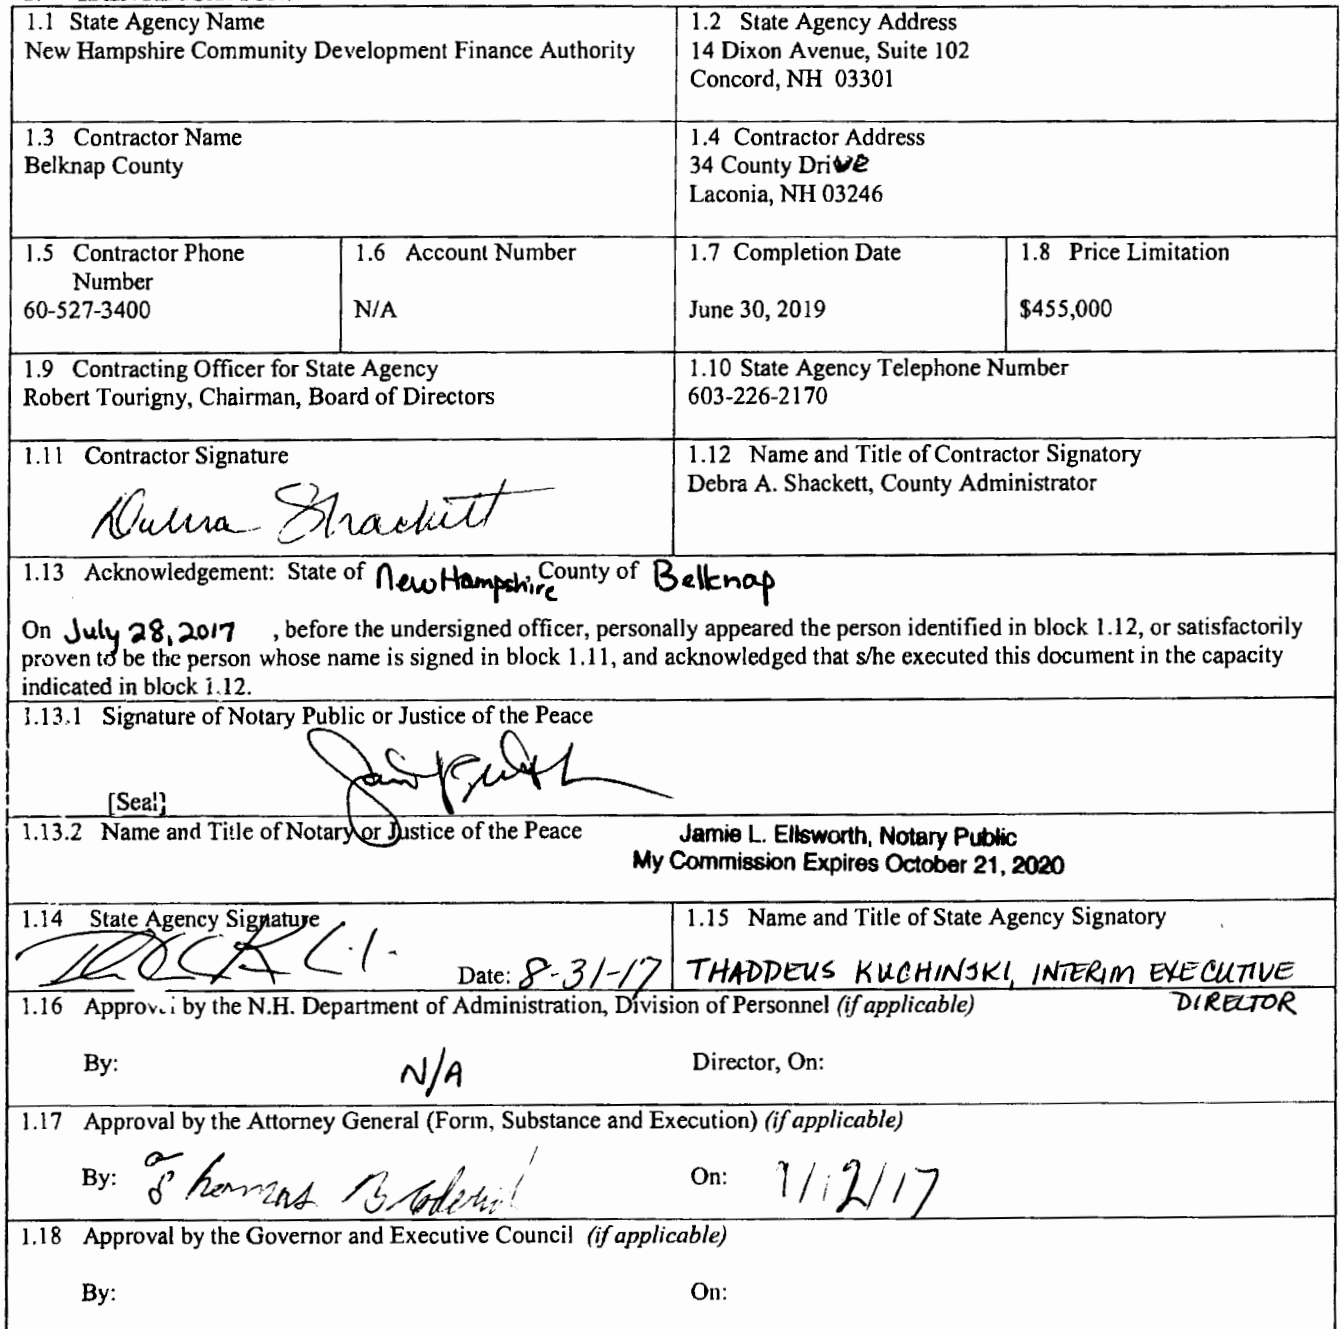 1.1 State Agency Name
New Hampshire Community Development Finance Authority
1.2 State Agency Address
14 Dixon Avenue, Suite 102
Concord, NH 03301
1.3 Contractor Name
Belknap County
1.4 Contractor Address
34 County Drive
Laconia, NH 03246
1.5 Contractor Phone
Number
60-527-3400
1.6 Account Number
N/A
1.7 Completion Date
June 30, 2019
1.8 Price Limitation
$455,000
1.9 Contracting Officer for State Agency
Robert Tourigny, Chairman, Board of Directors
1.10 State Agency Telephone Number
603-226-2170
1.11 Contractor Signature
Debra Shackett
1.12 Name and Title of Contractor Signatory
Debra A. Shackett, County Administrator
1.13 Acknowledgement: State of New Hampshire County of Belknap
On July 28, 2017 , before the undersigned officer, personally appeared the person identified in block 1.12, or satisfactorily
proven to be the person whose name is signed in block 1.11, and acknowledged that s/he executed this document in the capacity
indicated in block 1.12.
1.13.1 Signature of Notary Public or Justice of the Peace
[Seal]
1.13.2 Name and Title of Notary or Justice of the Peace
Jamie L. Ellsworth, Notary Public
My Commission Expires October 21, 2020
1.14 State Agency Signature
Date: 8-31-17
1.15 Name and Title of State Agency Signatory
THADDEUS KUCHINSKI, INTERIM EXECUTIVE
DIRECTOR
1.16 Approval by the N.H. Department of Administration, Division of Personnel (if applicable)
By: N/A
Director, On:
1.17 Approval by the Attorney General (Form, Substance and Execution) (if applicable)
By: Thomas
On: 9/12/17
1.18 Approval by the Governor and Executive Council (if applicable)
By:
On: